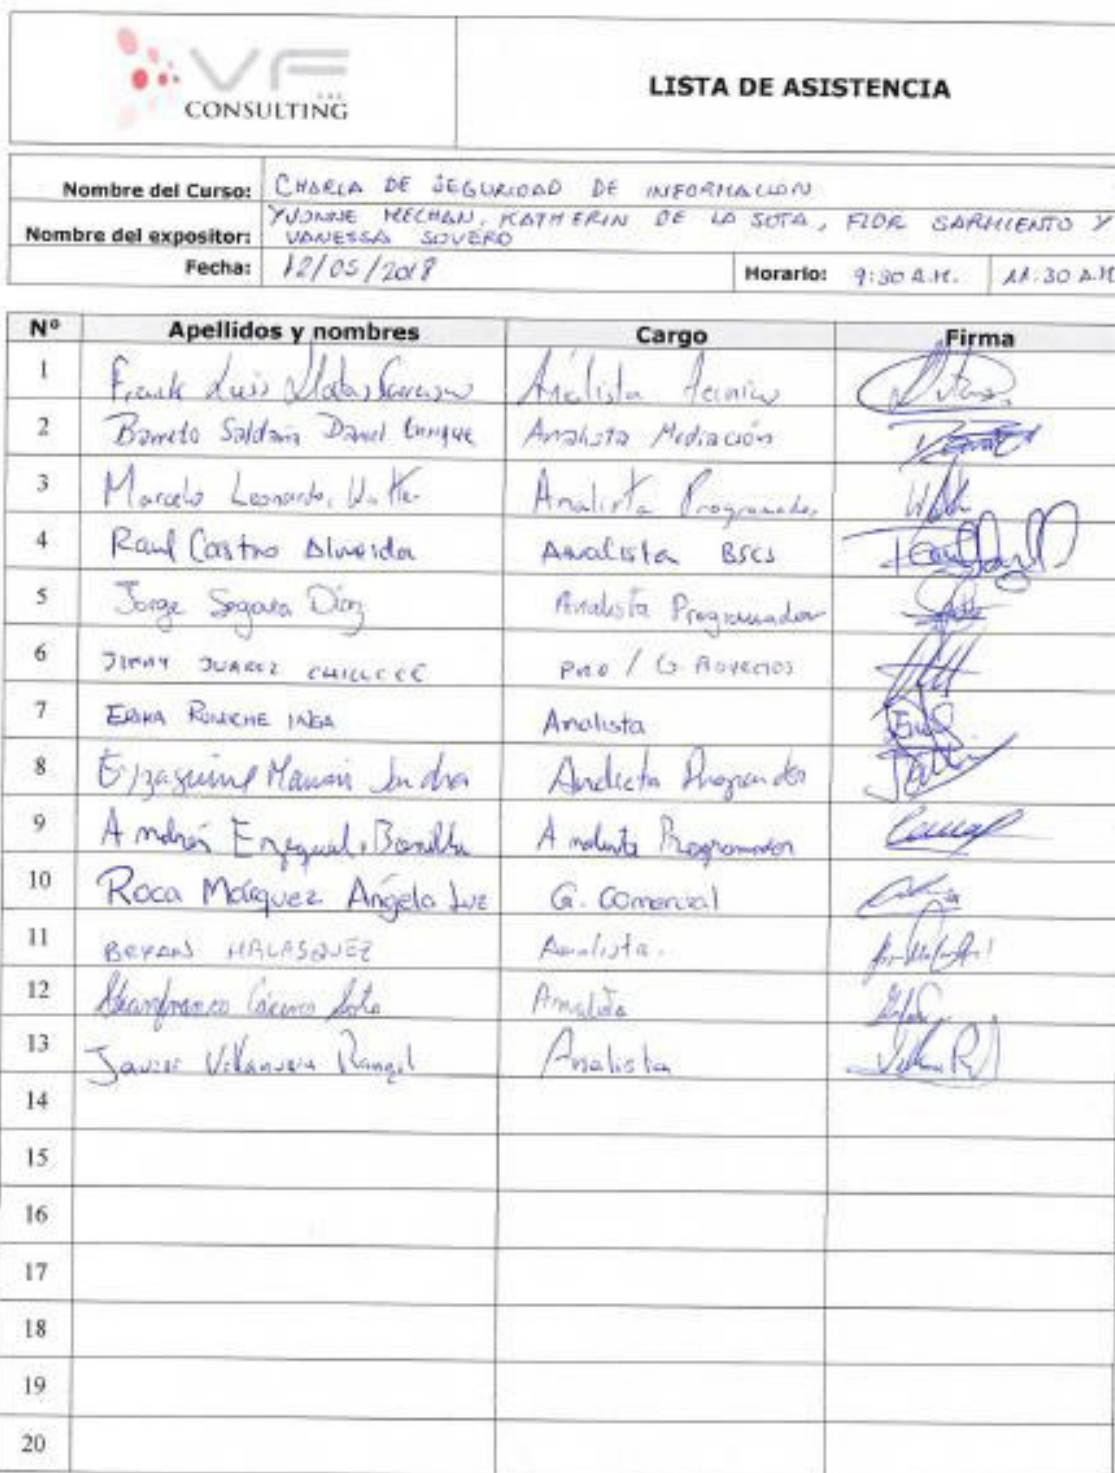 VF
S.A.C
CONSULTING
LISTA DE ASISTENCIA
Nombre del Curso: CHARLA DE SEGURIDAD DE INFORMACION
Nombre del expositor: YVONNE MECHAN, KATHERIN DE LA SOTA, FLOR SARMIENTO Y
VANESSA SOVERO
Fecha: 12/05/2018 Horario: 9:30 A.M. 11:30 A.M
Nº Apellidos y nombres Cargo Firma
1 Frank Luis Analista tecnico
2 Barreto Saldaña Daniel Enrique Analista Mediación
3 Marcelo Leonardo, Walter Analista Programador
4 Raul Castro Almeida Analista BSCS
5 Jorge Segovia Díaz Analista Programador
6 JIMMY JUAREZ PMO / G PROYECTOS
7 ERIKA RUMICHE INGA Analista
8 Eyzaguirre Mamani Analista Programador
9 Andrés Ezequiel Bonilla Analista Programador
10 Roca Márquez Angela Luz G. Comercial
11 BRYAN MALASQUEZ Analista.
12 Gianfranco Cáceres Soto Analista
13 Javier Villanueva Rangel Analista
14
15
16
17
18
19
20